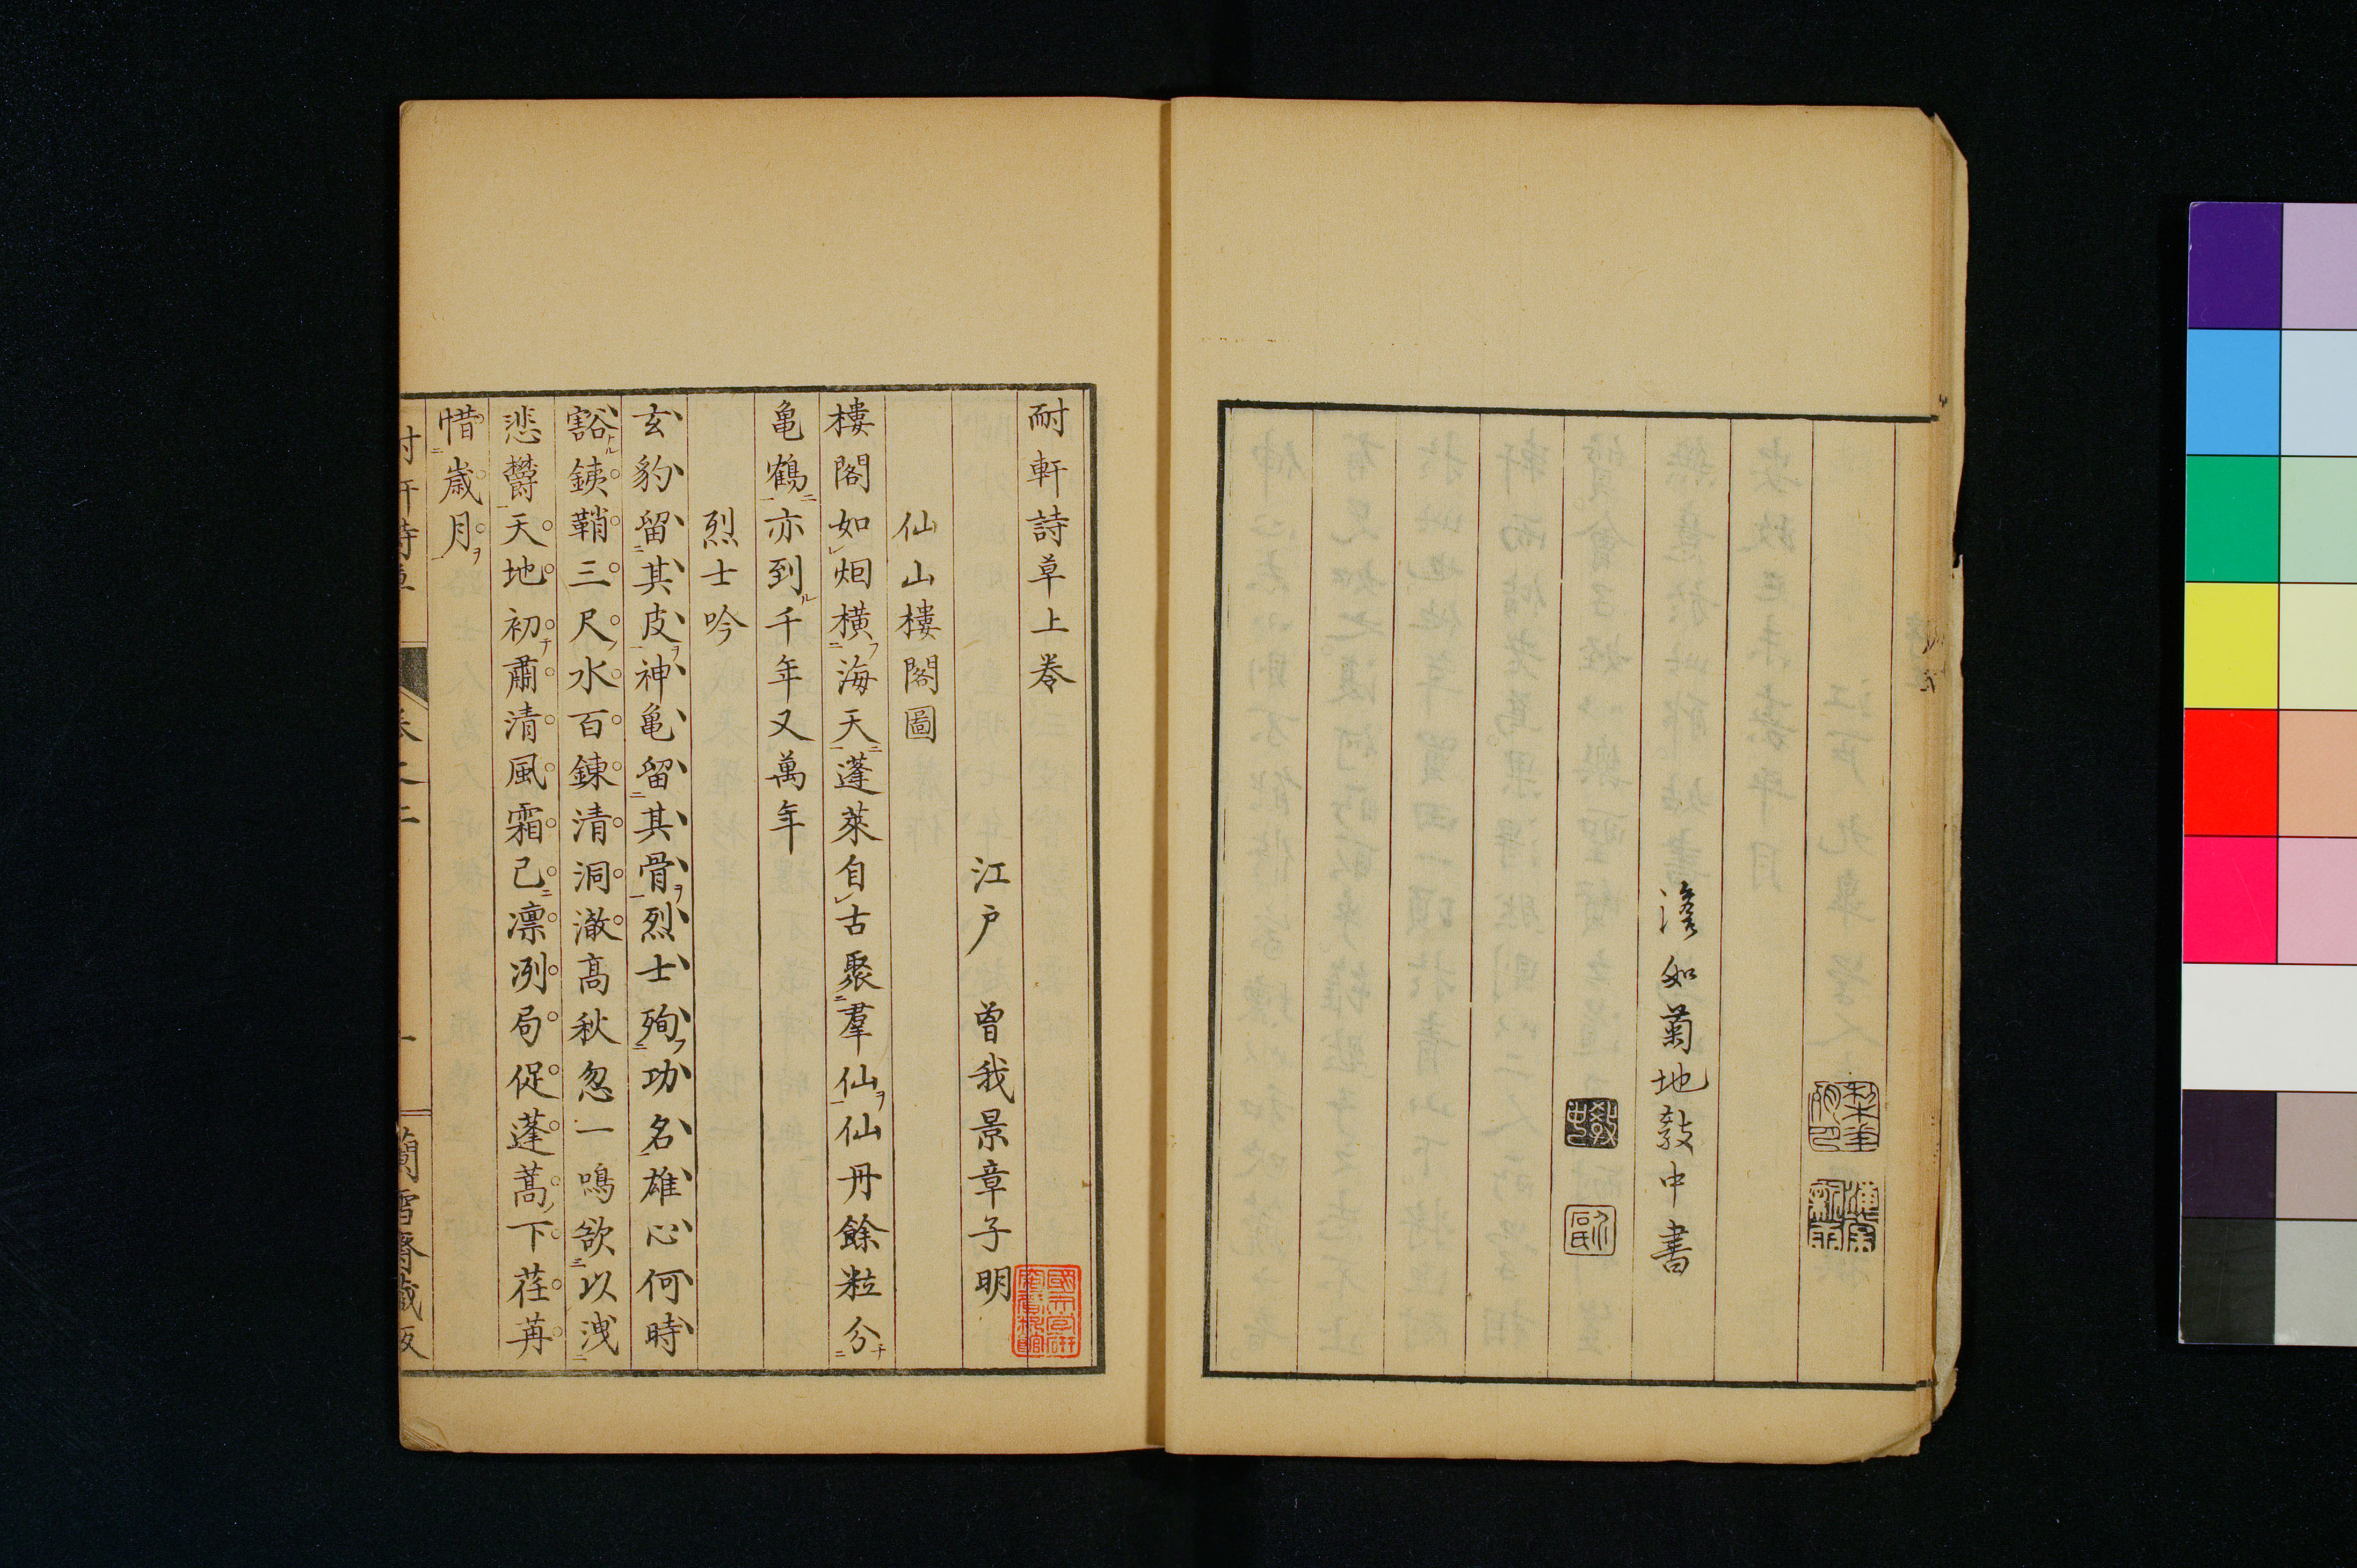 澹如菊地敎中書
耐軒詩草上卷
江戶　曾我景章子明
仙山樓閣圖
樓閣如烟橫海天蓬萊自古聚羣仙仙丹餘粒分
亀鶴亦到千年又萬年
烈士吟
玄豹留其皮神亀留其骨烈士殉功名雄心何時
豁銕鞘三尺水百鍊清洞澈高秋忽一鳴欲以洩
悲欝天地初肅清風霜已凛冽局促蓬蒿下荏苒
惜歳月
蘭雪齋藏版